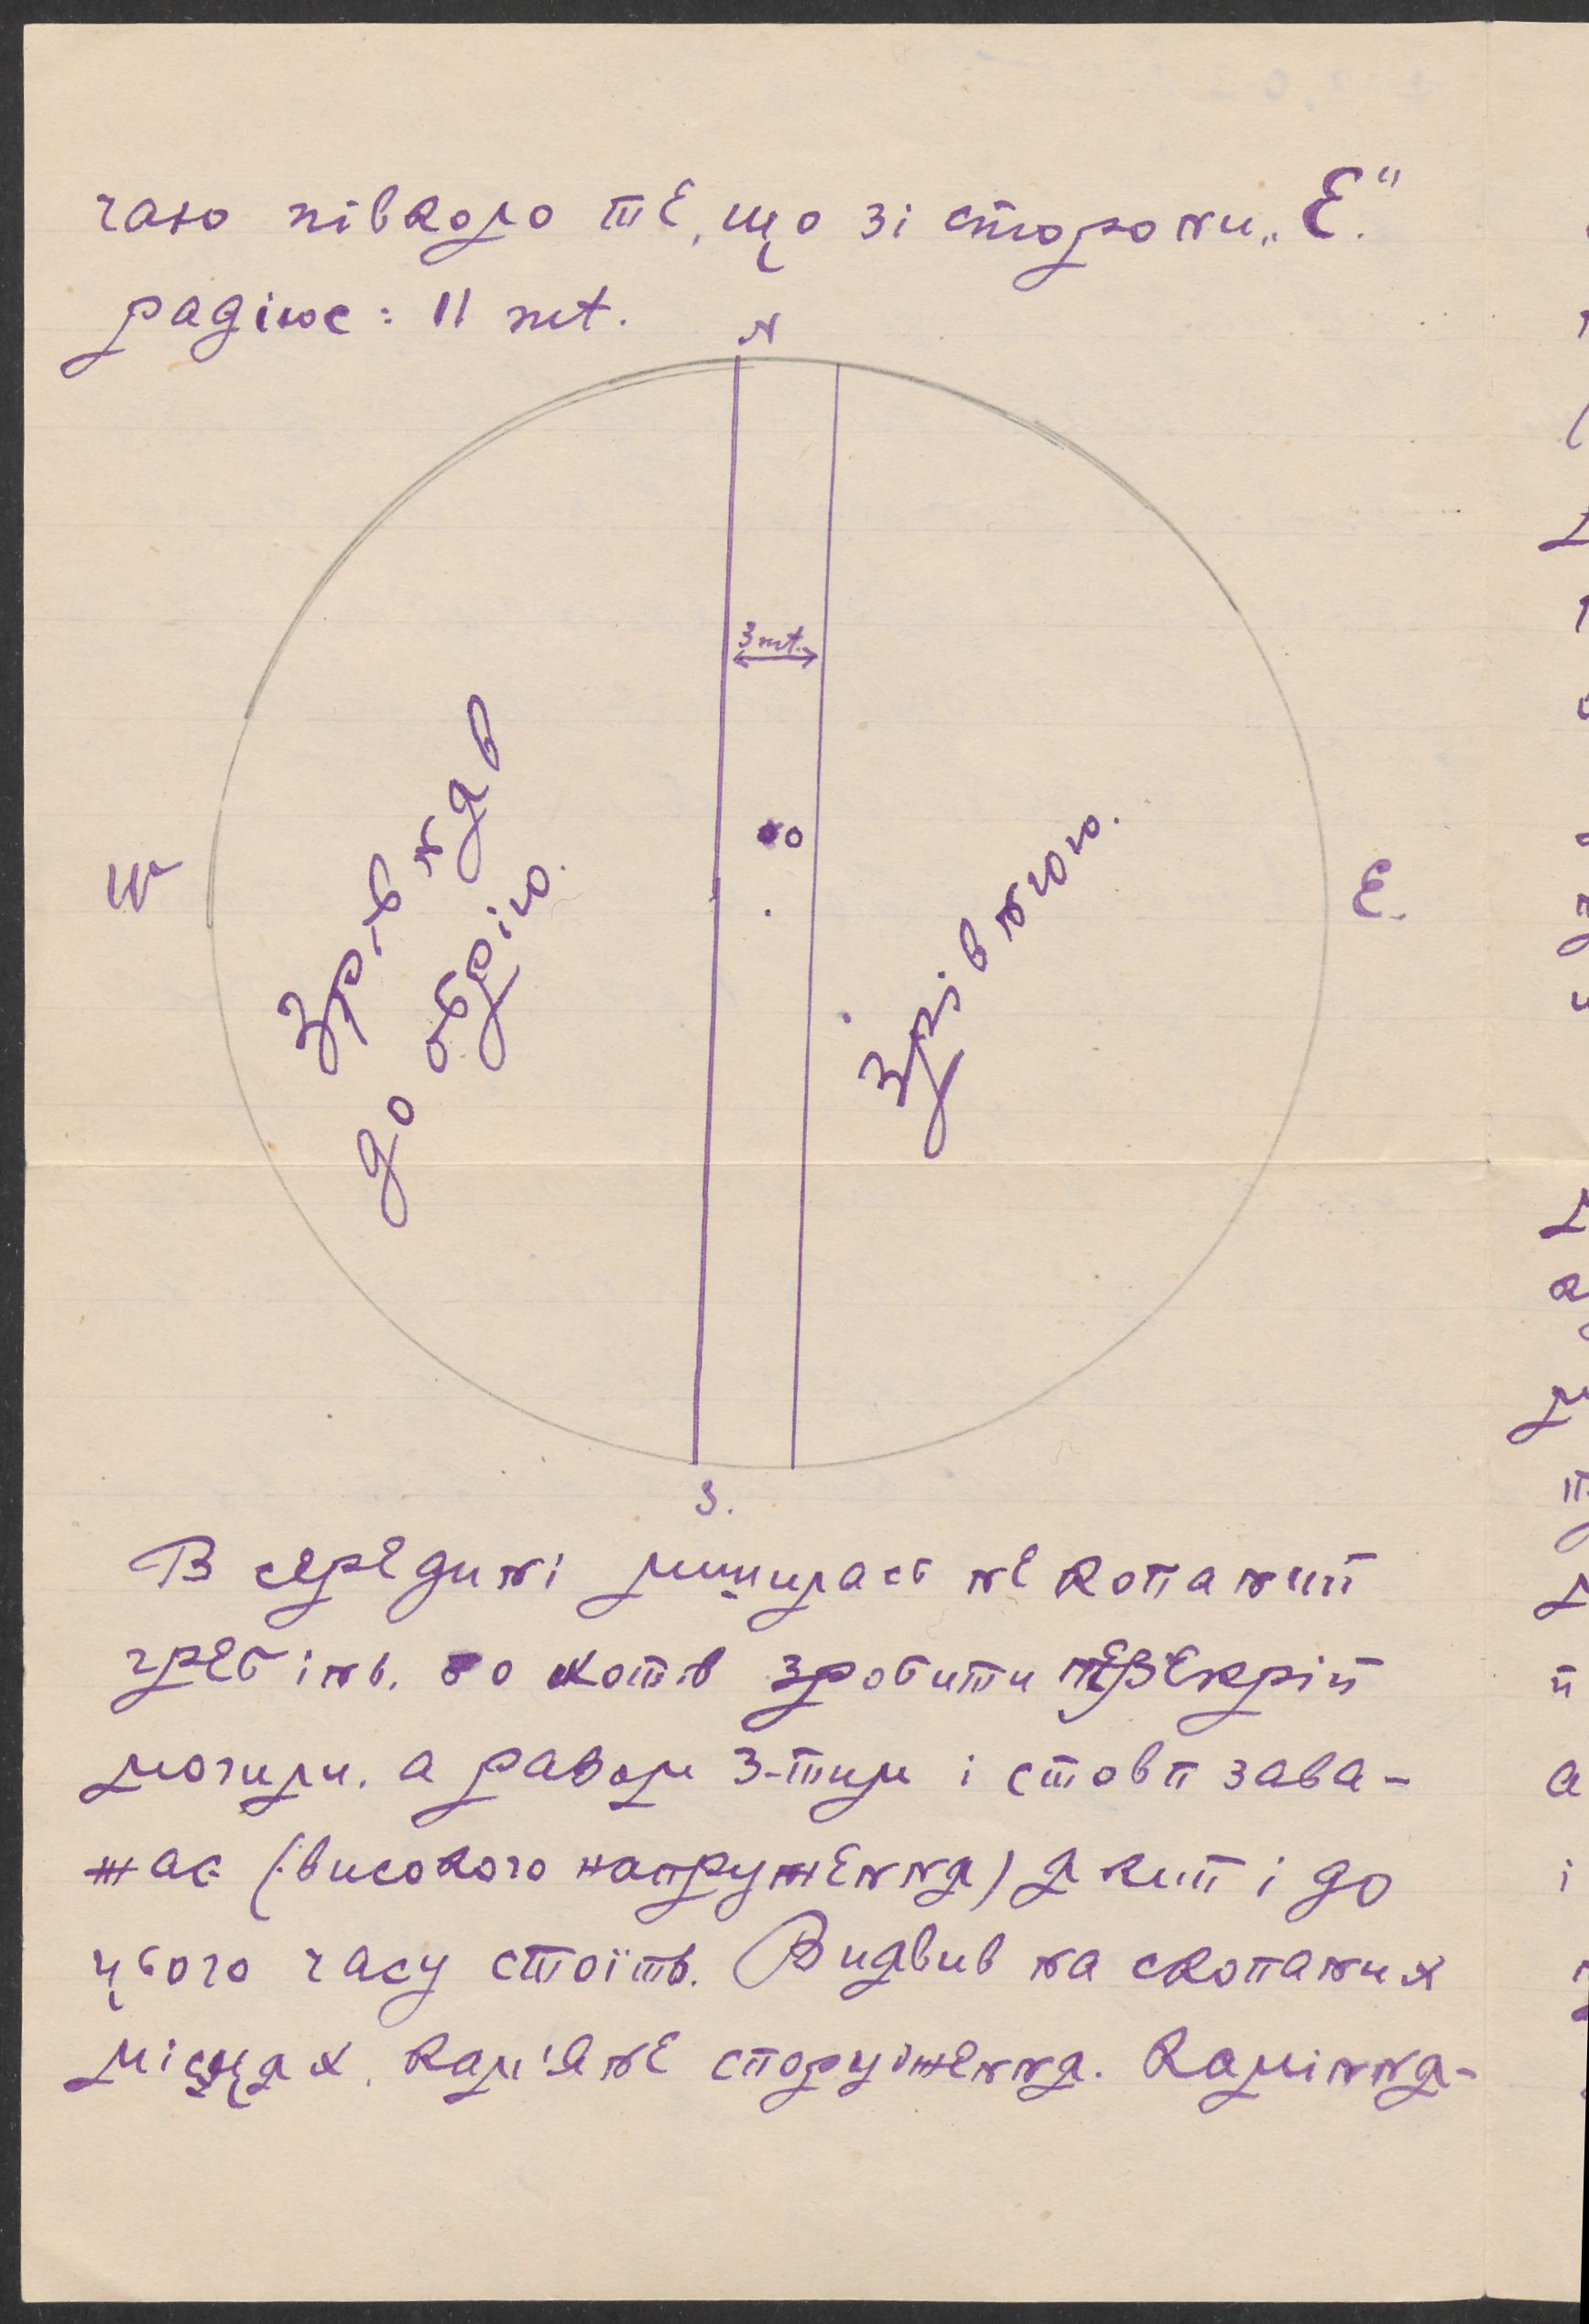 чаю півколо те, що зі сторони „Е."
радіюс: 11 mt.
N
3 mt.
W
Зрівняв
до обрію.
зрівнюю.
Е.
S.
В середині лишилась не копаний
гребінь. бо хотів зробити перекрій
могили. а разом з-тим і стовп зава-
жає (високого напруження) який і до
цього часу стоїть. Виявив на скопаних
місцях, кам'яне спорудження. Каміння-